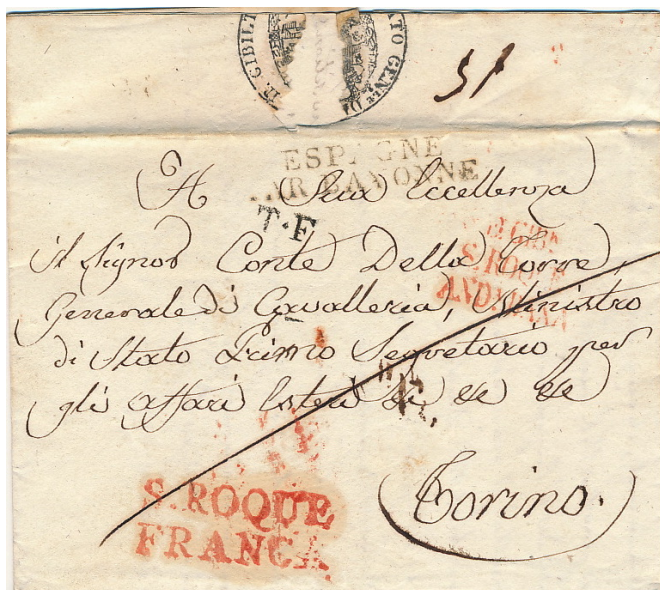 IL GIBILT
ATO GENLE DI
51
ESPAGNE
PAR BAYONNE
T.F
A Sua Eccellenza
il Signor Conte Della Torre,
Generale di Cavalleria, Ministro
di Stato Primo Segretario per
gli affari Esteri di
S. ROQUE
ANDALUCIA
R.
Torino.
S. ROQUE
FRANCA